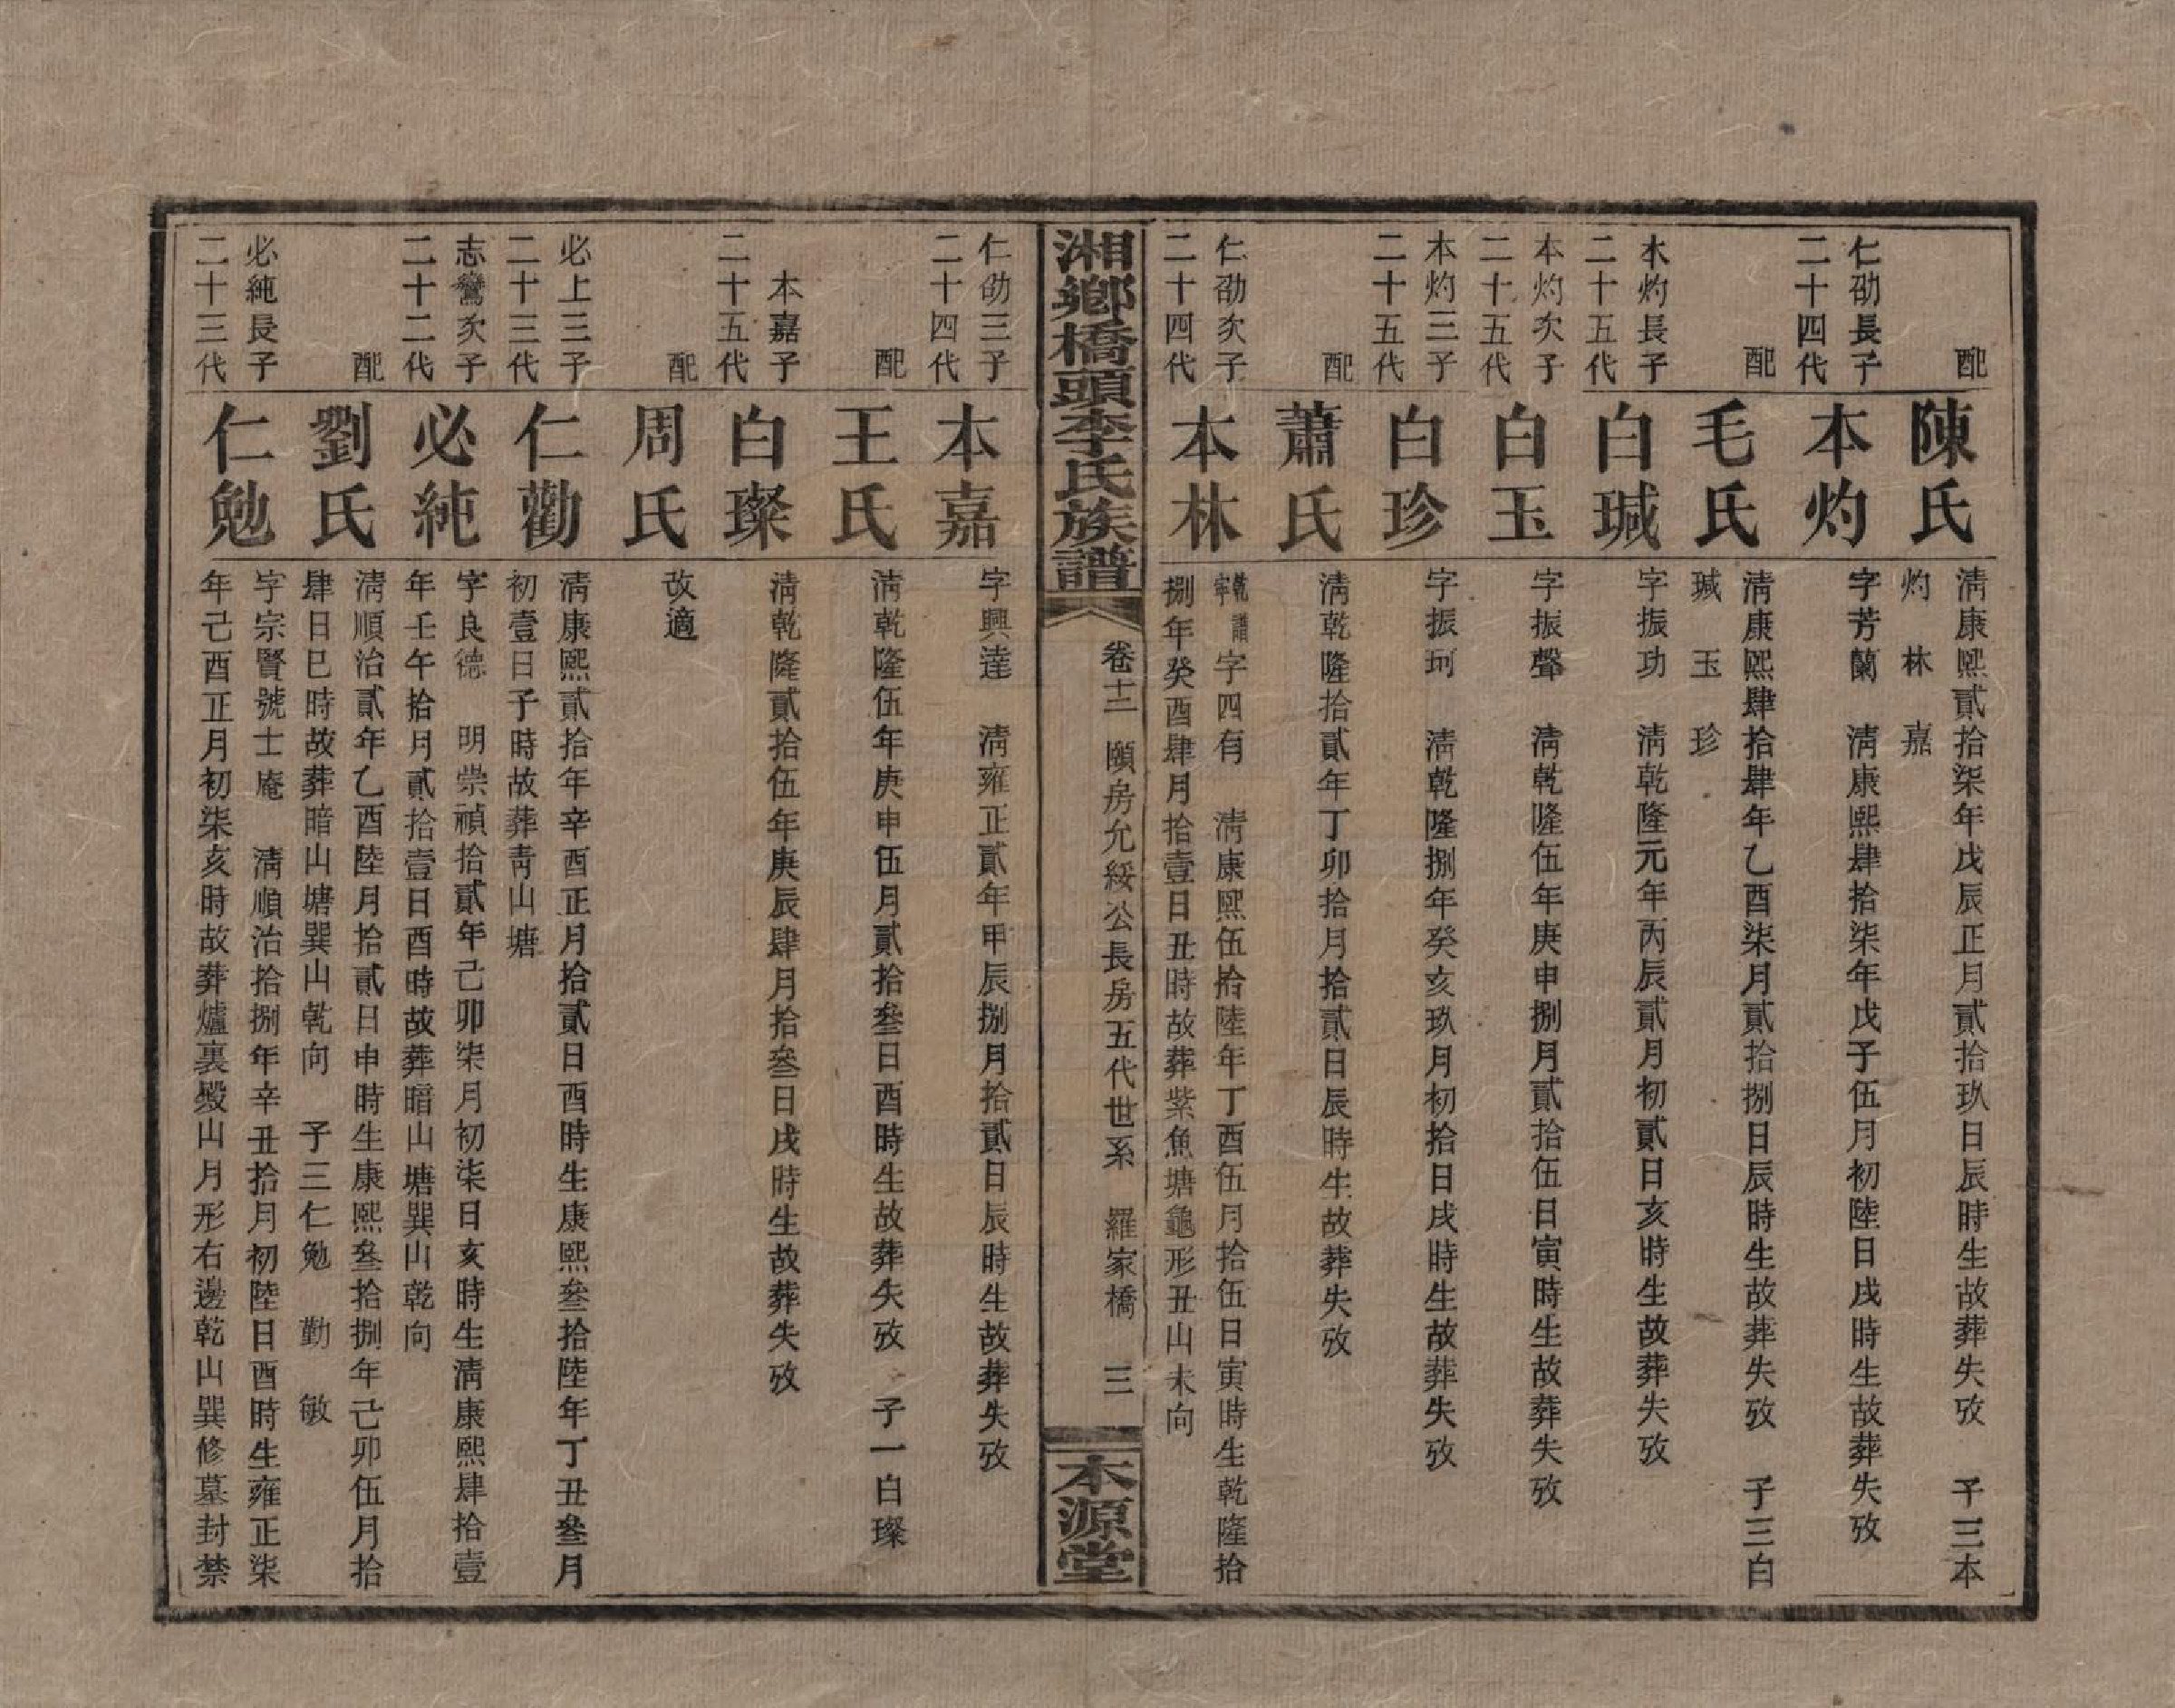 配
陳氏
清康熙貳拾柒年戊辰正月貳拾玖日辰時生故葬失攷　子三本
灼　林　嘉
仁劭長子
二十四代
本灼
字芳蘭　清康熙肆拾柒年戊子伍月初陸日戌時生故葬失攷
配
毛氏
清康熙肆拾肆年乙酉柒月貳拾捌日辰時生故葬失攷　子三白
瑊　玉　珍
本灼長子
二十五代
白瑊
字振功　清乾隆元年丙辰貳月初貳日亥時生故葬失攷
本灼次子
二十五代
白玉
字振聲　清乾隆伍年庚申捌月貳拾伍日寅時生故葬失攷
本灼三子
二十五代
白珍
字振珂　清乾隆捌年癸亥玖月初拾日戌時生故葬失攷
配
蕭氏
清乾隆拾貳年丁卯拾月拾貳日辰時生故葬失攷
仁劭次子
二十四代
本林
乾譜字字四有　清康熙伍拾陸年丁酉伍月拾伍日寅時生乾隆拾
捌年癸酉肆月拾壹日丑時故葬紫魚塘龜形丑山未向
湘鄉橋頭李氏族譜
卷十二　頤房允綏公長房五代世系　羅家橋　三
本源堂
仁劭三子
二十四代
本嘉
字興達　清雍正貳年甲辰捌月拾貳日辰時生故葬失攷
配
王氏
清乾隆伍年庚申伍月貳拾叄日酉時生故葬失攷　子一白璨
本嘉子
二十五代
白璨
清乾隆貳拾伍年庚辰肆月拾叄日戌時生故葬失攷
配
周氏
改適
必上三子
二十三代
仁勸
清康熙貳拾年辛酉正月拾貳日酉時生康熙叄拾陸年丁丑叄月
初壹日子時故葬青山塘
志鸞次子
二十二代
必純
字良德　明崇禎拾貳年己卯柒月初柒日亥時生清康熙肆拾壹
年壬午拾月貳拾壹日酉時故葬暗山塘巽山乾向
配
劉氏
清順治貳年乙酉陸月拾貳日申時生康熙叄拾捌年己卯伍月拾
肆日巳時故葬暗山塘巽山乾向　子三仁勉　勤　敏
必純長子
二十三代
仁勉
字宗賢號士庵　清順治拾捌年辛丑拾月初陸日酉時生雍正柒
年己酉正月初柒亥時故葬爐裏燬山月形右邊乾山巽修墓封禁